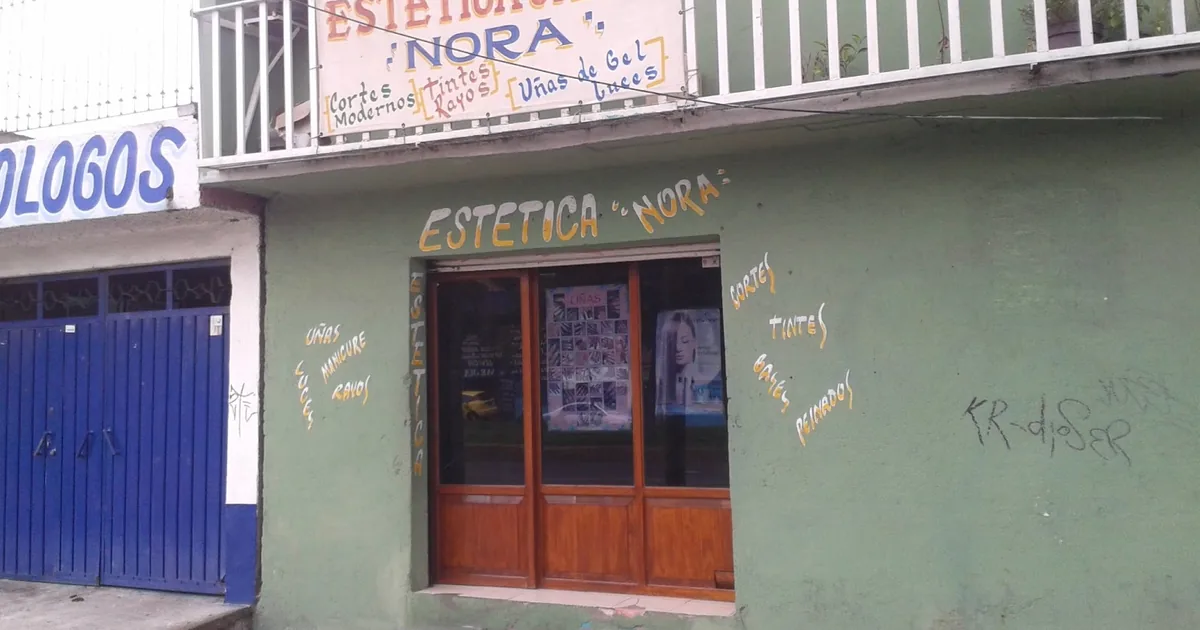 ESTETICA
"NORA"
Cortes
Modernos
Tintes
Rayos
Uñas de Gel
Luces
OLOGOS
ESTETICA "NORA"
ESTETICA
UÑAS
MANICURE
LUCES
RAYOS
UÑAS
CORTES
TINTES
BASES
PEINADOS